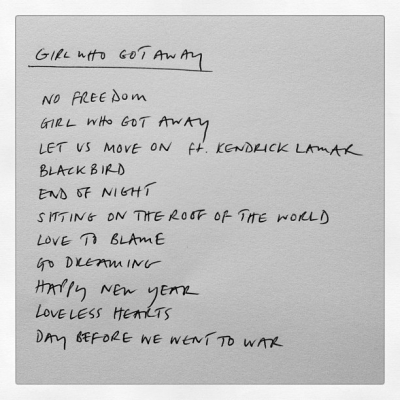 GIRL WHO GOT AWAY
NO FREEDOM
GIRL WHO GOT AWAY
LET US MOVE ON ft. KENDRICK LAMAR
BLACKBIRD
END OF NIGHT
SITTING ON THE ROOF OF THE WORLD
LOVE TO BLAME
GO DREAMING
HAPPY NEW YEAR
LOVELESS HEARTS
DAY BEFORE WE WENT TO WAR